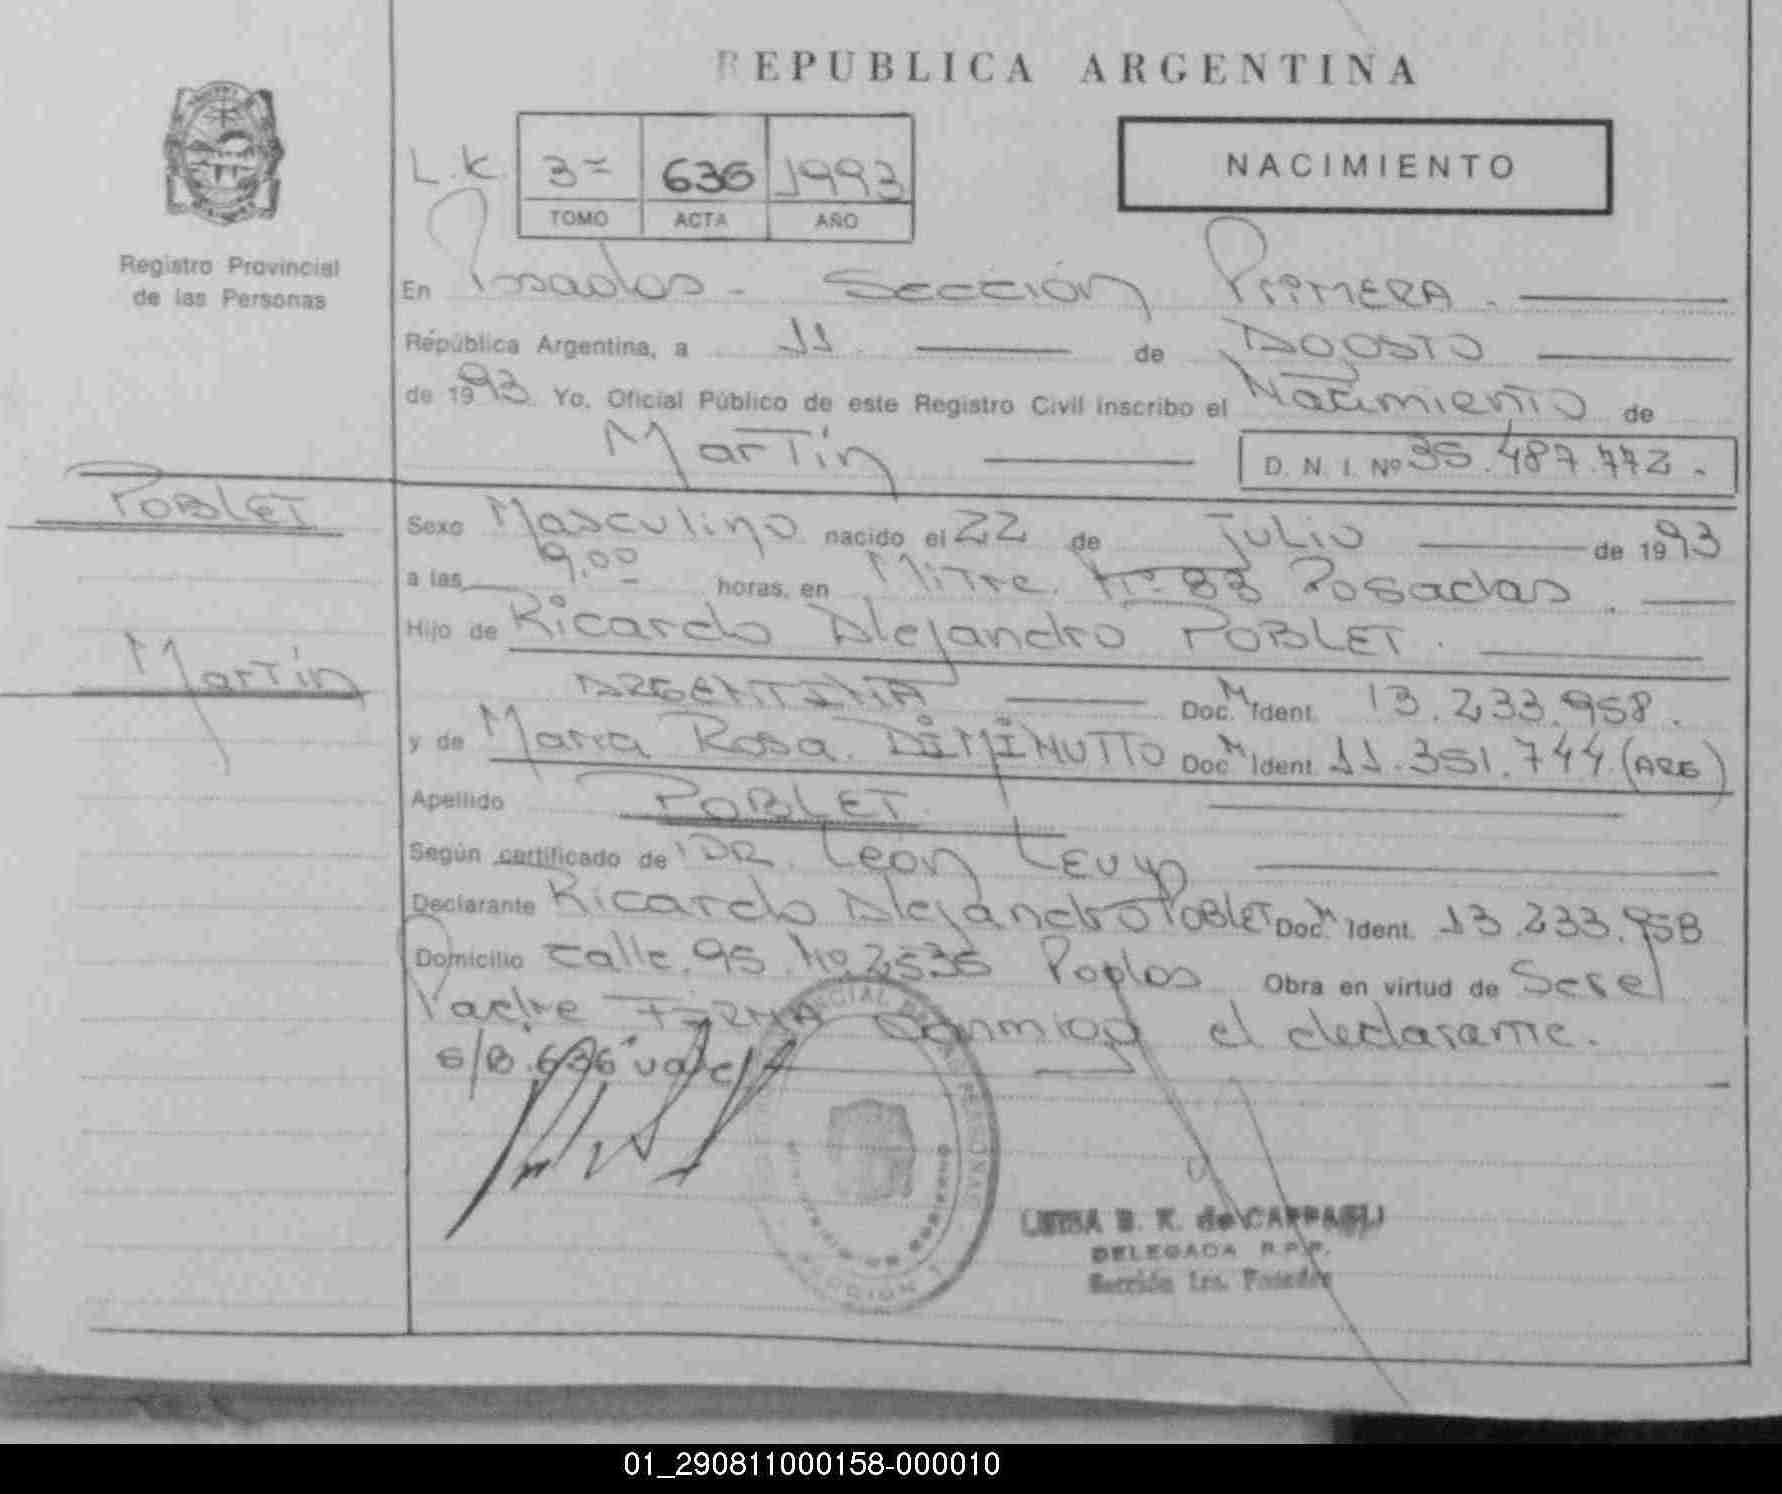 REPUBLICA ARGENTINA
NACIMIENTO
L.K. 3º 636 1993
TOMO ACTA AÑO
Registro Provincial
de las Personas
En Posadas - Sección PRIMERA.
República Argentina, a 11 de AGOSTO
de 1993 Yo, Oficial Público de este Registro Civil inscribo el Nacimiento de
Martín
D. N. I. Nº 35.487.772.
POBLET
Martín
Sexo Masculino nacido el 22 de Julio de 1993
a las 9.00 horas, en Mitre Nº 83 Posadas.
Hijo de Ricardo Alejandro POBLET.
ARGENTINA Doc. M Ident. 13.233.958.
y de María Rosa DIMINUTTO Doc. M Ident. 11.351.744 (ARG)
Apellido POBLET
Según certificado de DR. Leon Levy
Declarante Ricardo Alejandro POBLET Doc. M Ident. 13.233.958
Domicilio calle 95 Nº 2535 Obra en virtud de Ser el
Padre FIRMA conmigo el declarante.
S/B. 636 vale
DELEGADA R.P.P.
Sección 1ra. Posadas
01_290811000158-000010